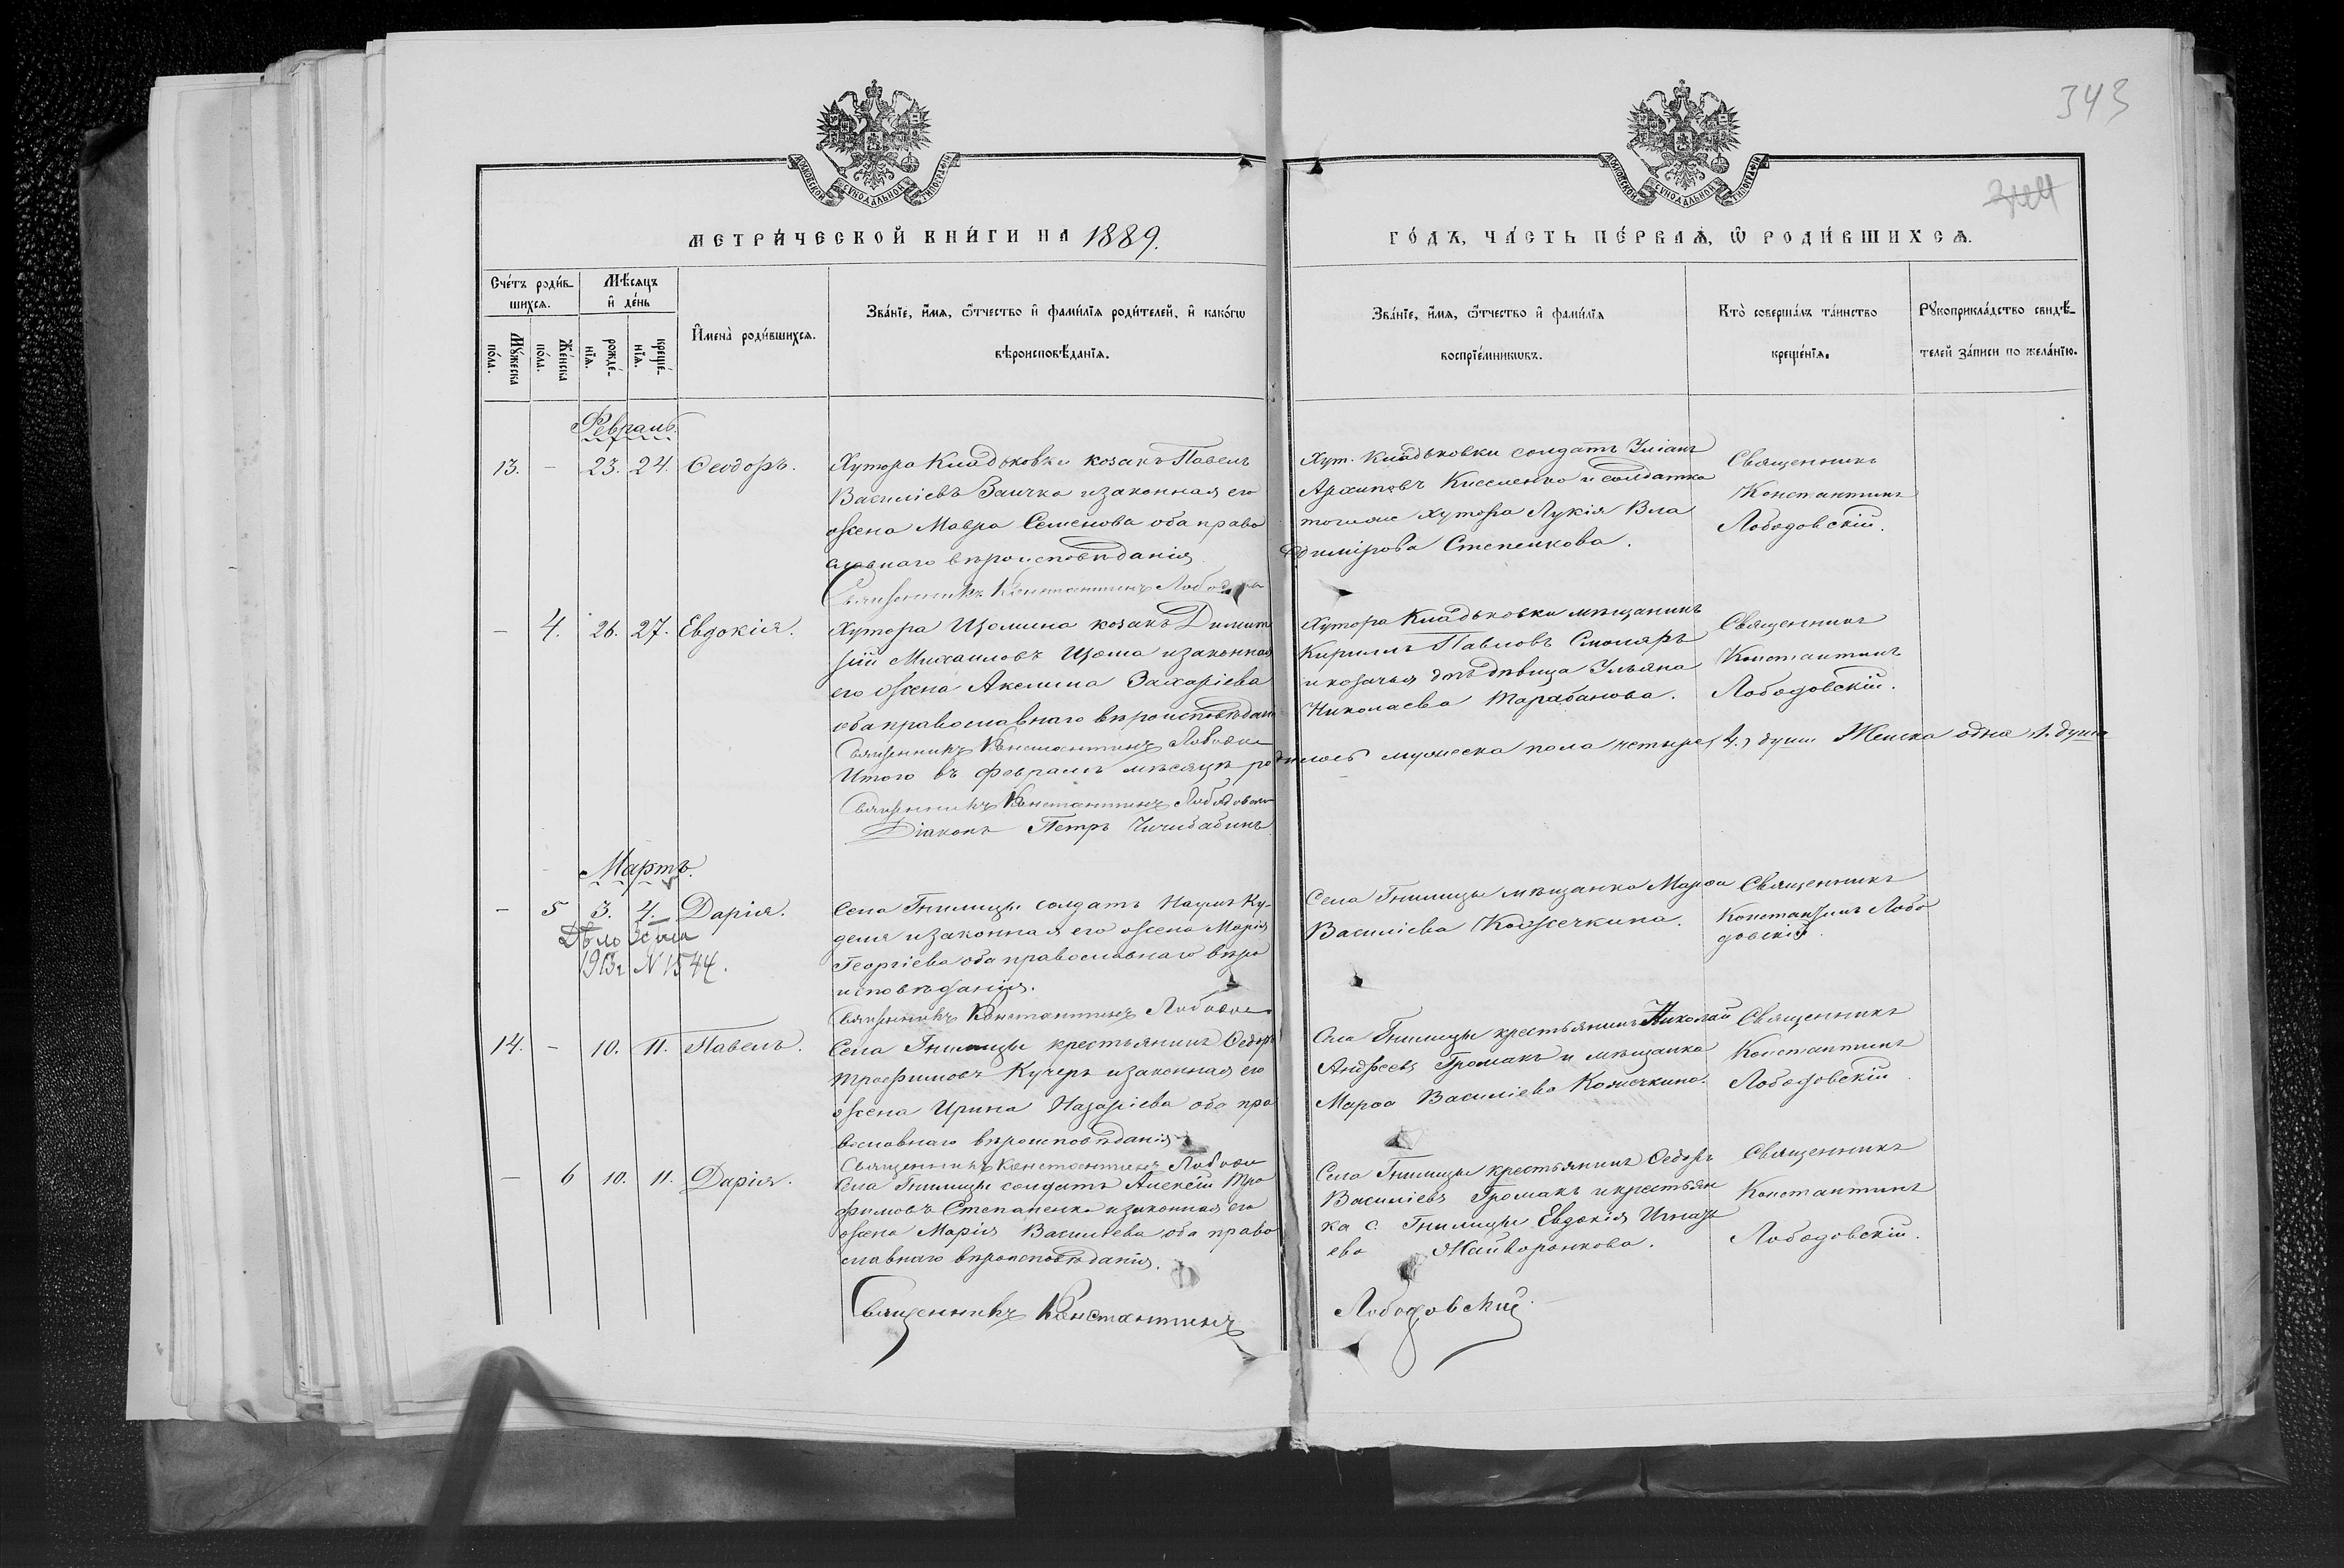 343
МОСКОВСКОЙ СѴНОДАЛЬНОЙ ТИПОГРАФІИ
МОСКОВСКОЙ СѴНОДАЛЬНОЙ ТИПОГРАФІИ
МЕТРИ́ЧЕСКОЙ КНИ́ГИ НА 1889.
ГО́ДЪ, ЧА́СТЬ ПЕ́РВАѦ, Ѡ҆ РОДИ́ВШИХСѦ.
Сче́тъ роди́в-
шихсѧ.
Мѣ́сѧцъ
и҆ де́нь
Мꙋ́жеска
по́ла.
Же́нска
по́ла.
рожде́-
нїѧ.
креще́-
нїѧ.
И҆мена̀ роди́вшихсѧ.
Зва́нїе, и҆́мѧ, ѻ҆́тчество и҆ фами́лїѧ роди́телей, и҆ како́гѡ
вѣроисповѣ́данїѧ.
Зва́нїе, и҆́мѧ, ѻ҆́тчество и҆ фами́лїѧ
воспрїе́мникѡвъ.
Кто̀ соверша́лъ та́инство
креще́нїѧ.
Рꙋкоприкла́дство свидѣ́-
телей за́писи по жела́нїю.
Февраль.
13. – 23. 24. Ѳеодоръ.
Хутора Кладьковки козакъ Павелъ
Василіевъ Заичко и законная его
жена Мавра Семенова оба право
славнаго вѣроисповѣданія
Священникъ Константинъ Лободов
Хут. Кладьковки солдатъ Іуліанъ
Архиповъ Киселенко и солдатка
тогоже хутора Лукія Вла
димірова Степенкова.
Священникъ
Константинъ
Лободовскій.
– 4. 26. 27. Евдокія.
Хутора Цѣомина козакъ Димит
рій Михаиловъ Цѣома и законная
его жена Акелина Захаріева
оба православнаго вѣроисповѣдан
Священникъ Константинъ Лободов
Хутора Кладьковки мѣщанинъ
Кирилъ Павловъ Смоляръ
и козачья дѣвица Ульяна
Николаева Тарабанова.
Священникъ
Константинъ
Лободовскій.
Итого въ февралѣ мѣсяцѣ родилось мужеска пола четыре, 4, души Женска одна, 1. душа
Священникъ Константинъ Лободовск
Діаконъ Петръ Чичибабинъ
Мартъ.
– 5 3. 4. Дарія.
Дѣло
1913г. № 1544.
Села Гнилицы солдатъ Наумъ Ку-
деля и законная его жена Марія
Георгіева оба православнаго вѣро
исповѣданія.
Священникъ Константинъ Лободов
Села Гнилицы мѣщанка Марѳа
Василіева Кожечкина.
Священникъ
Константинъ Лобо
довскій.
14. – 10. 11. Павелъ.
Села Гнилицы крестьянинъ Ѳедоръ
Трофимовъ Кучеръ и законная его
жена Ирина Назаріева оба пра
вославнаго вѣроисповѣданія
Священникъ Константинъ Лободов
Села Гнилицы крестьянинъ Николай
Андреевъ Громакъ и мѣщанка
Марѳа Василіева Кожечкина.
Священникъ
Константинъ
Лободовскій
– 6 10. 11. Дарія.
Села Гнилицы солдатъ Алексій Тро
фимовъ Степаненко и законная его
жена Марія Васильева оба право
славнаго вѣроисповѣданія.
Села Гнилицы крестьянинъ Ѳедоръ
Василіевъ Громакъ и крестьян
ка с. Гнилицы Евдокія Игнать
ева Жайворонкова.
Священникъ
Константинъ
Лободовскій.
Священникъ Константинъ Лободовскій.